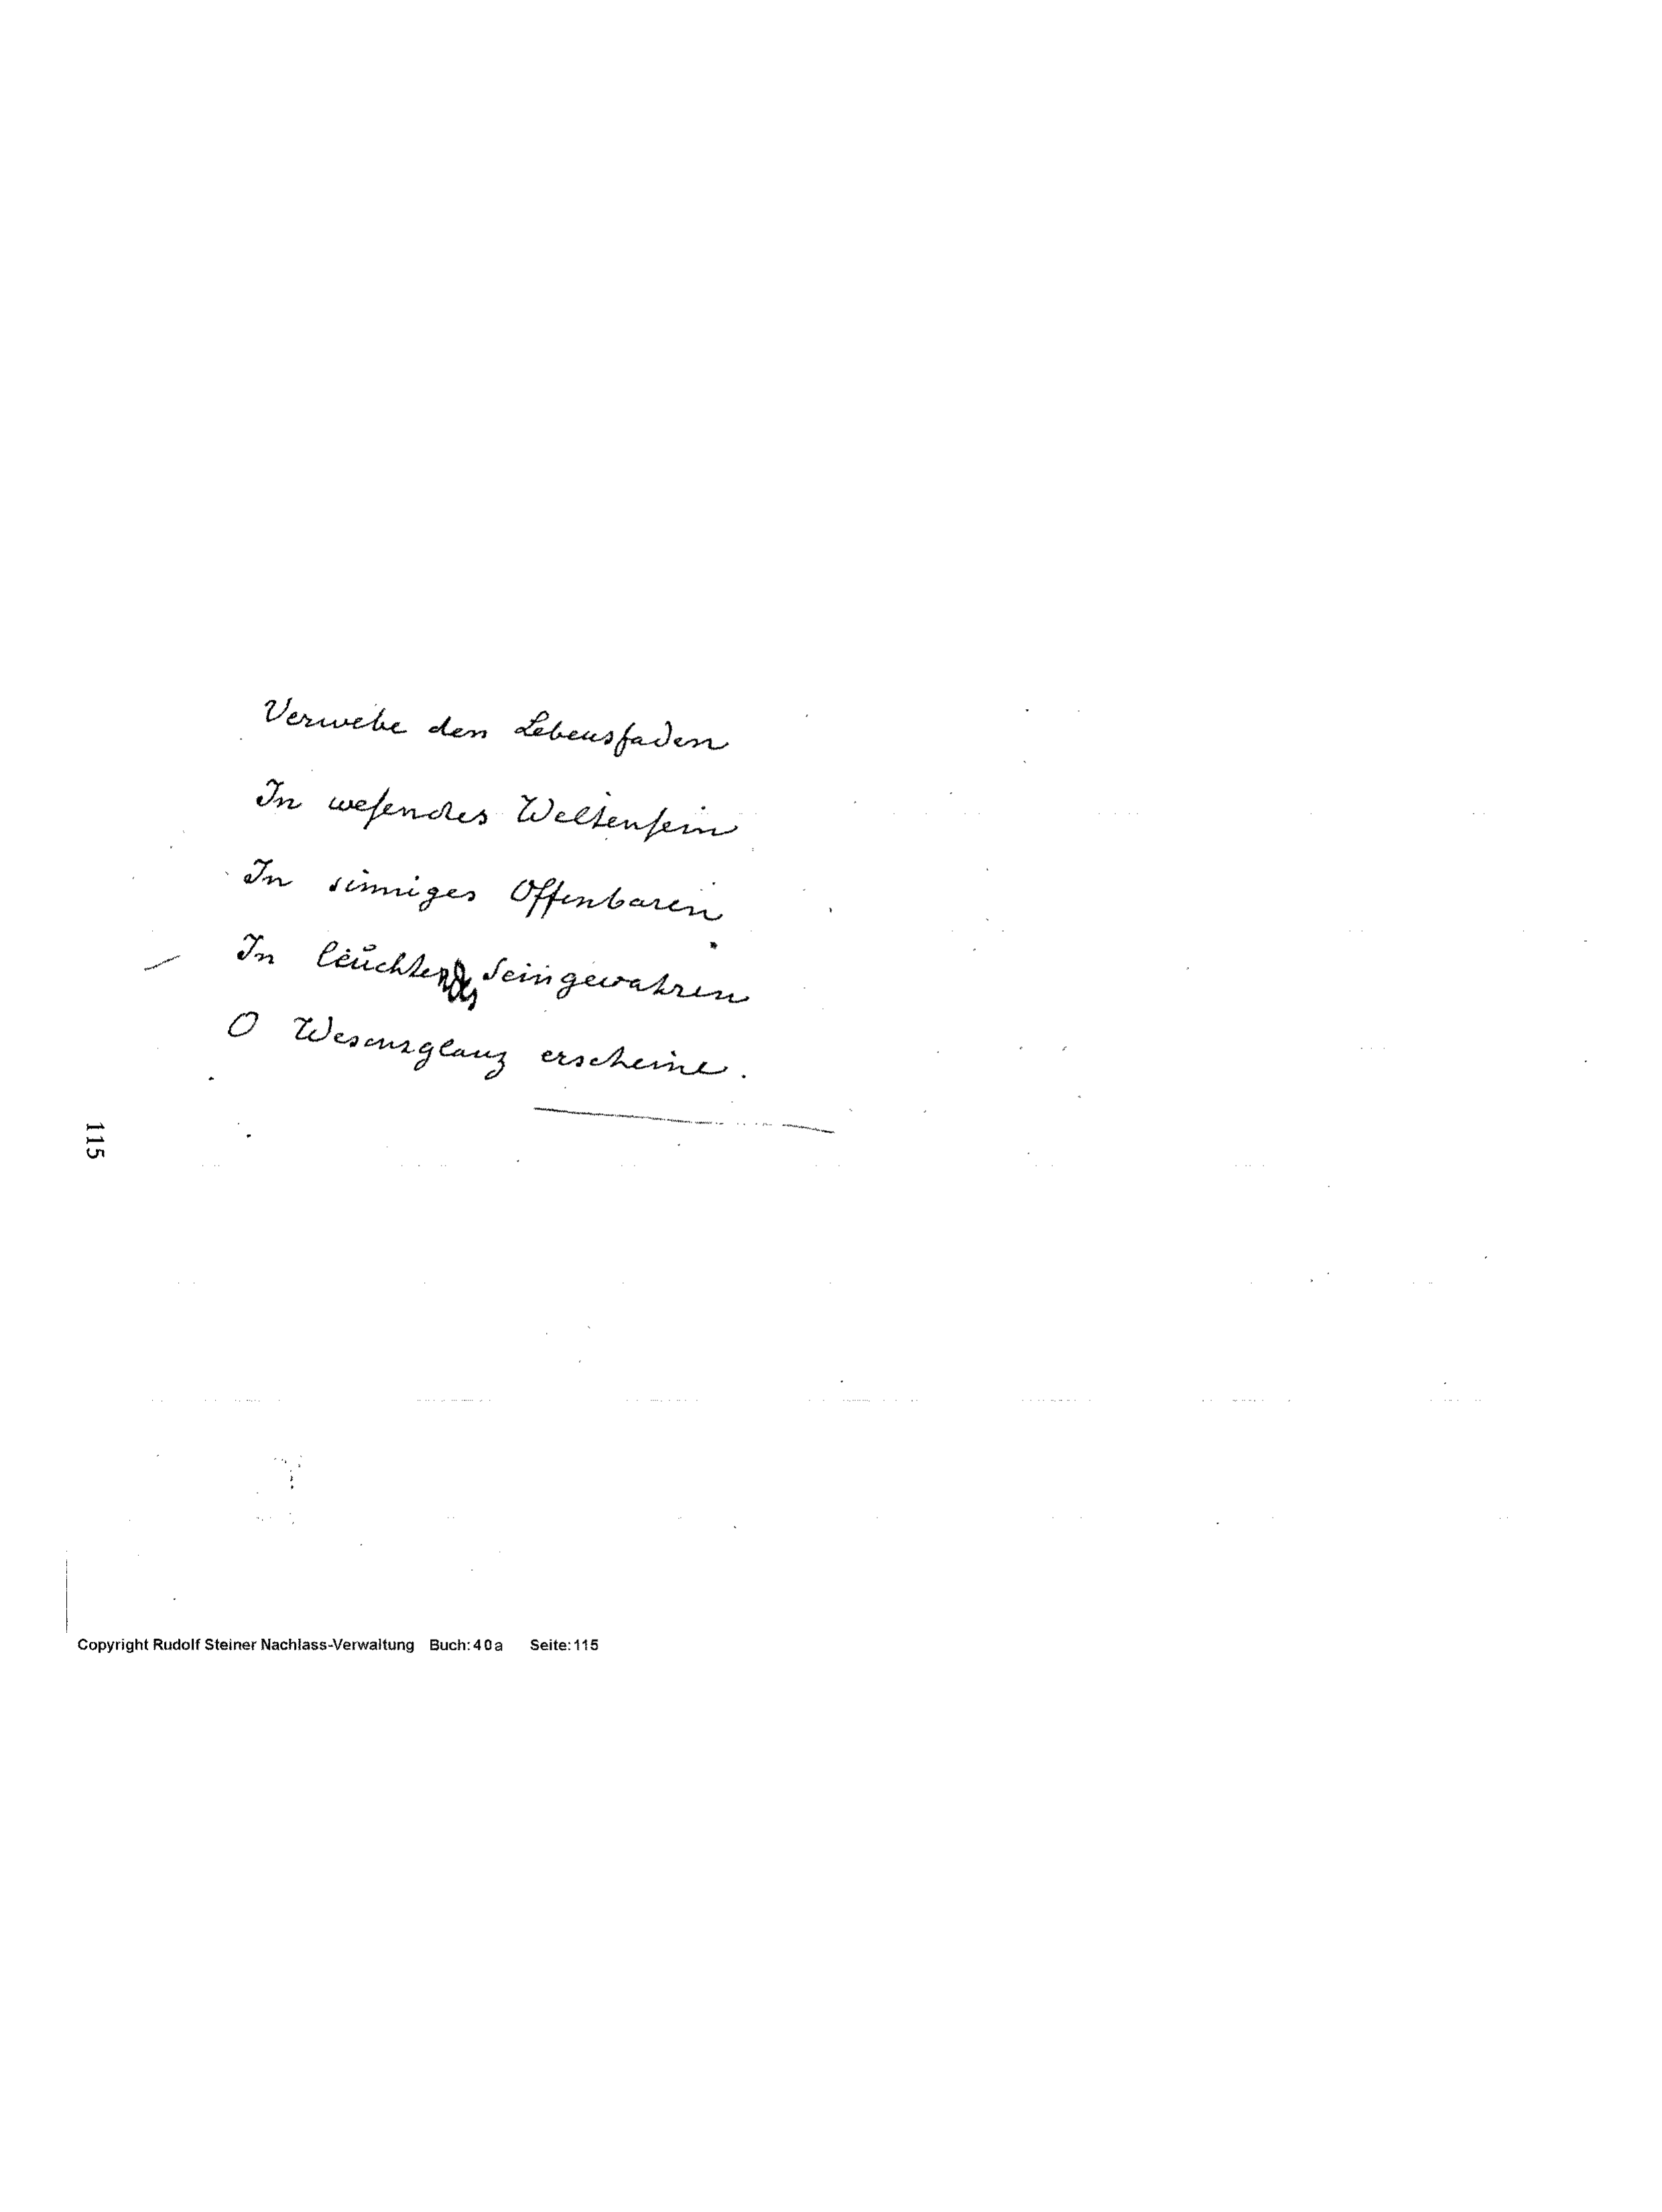 Verwebe den Lebensfaden
In wesendes Weltensein
In sinniges Offenbaren
In leuchtendes Seingewahren
O Wesensglanz erscheine.
115
Copyright Rudolf Steiner Nachlass-Verwaltung Buch: 40a Seite: 115